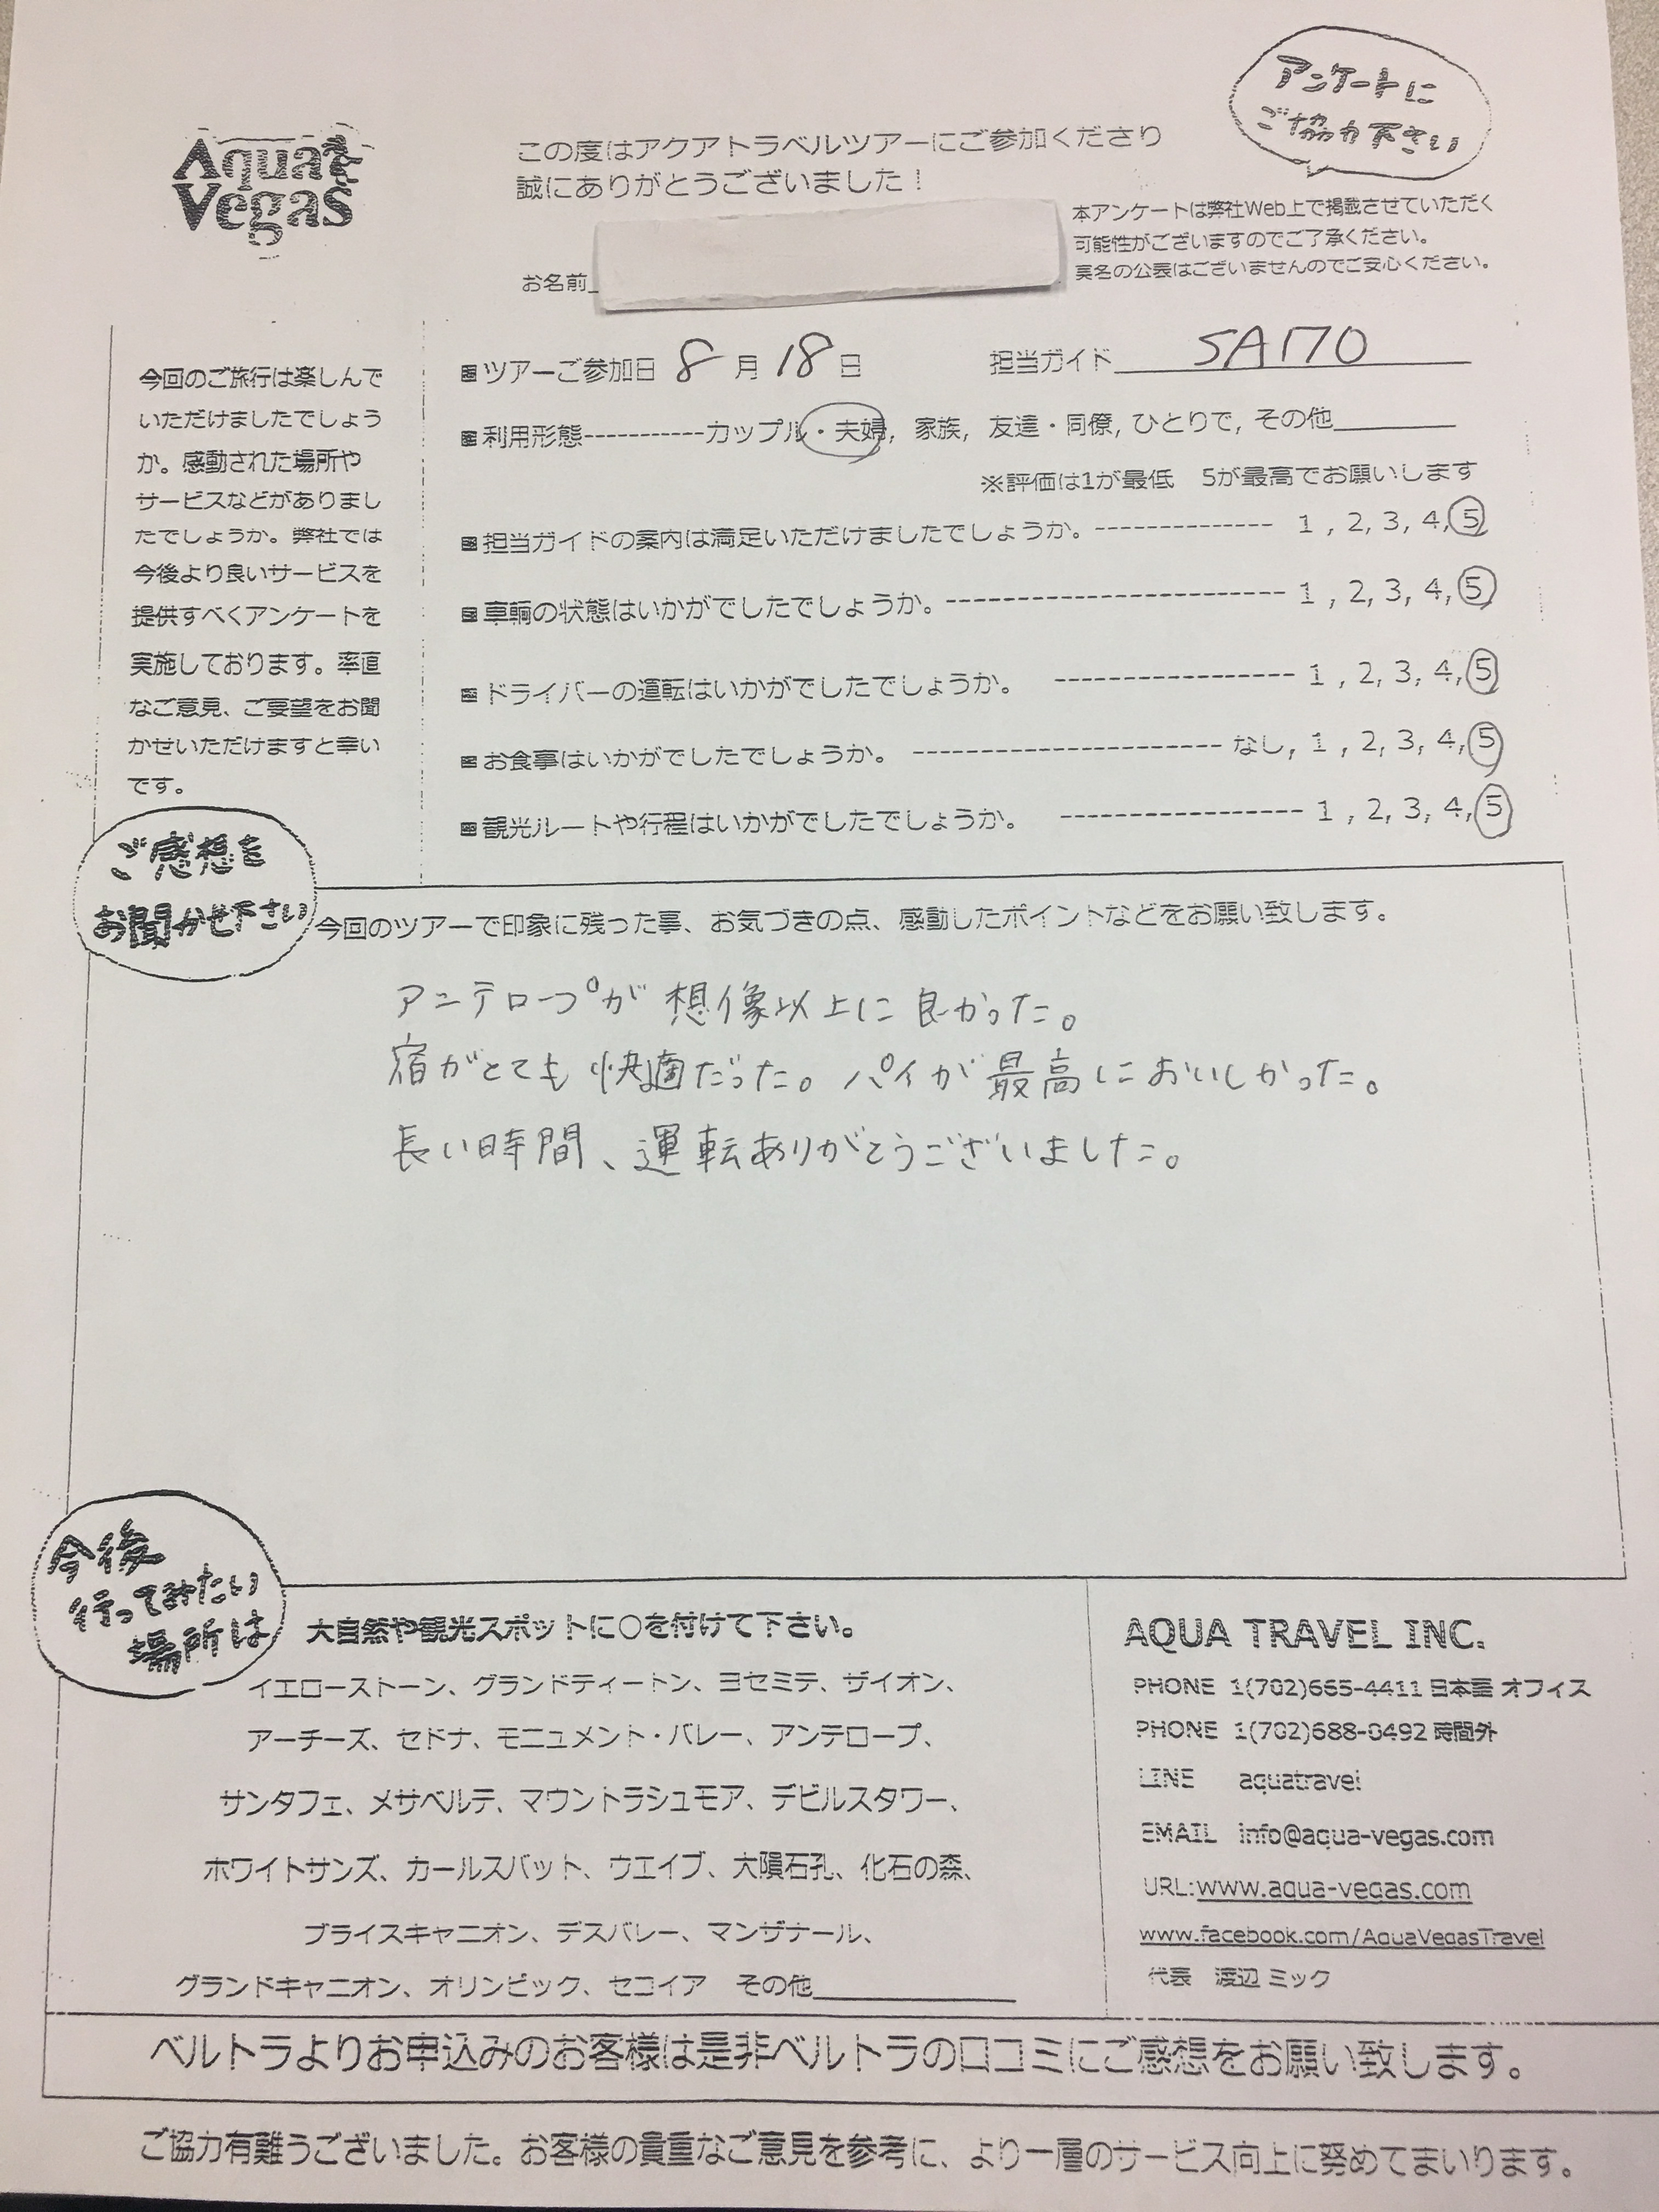 アンケートに
ご協力下さい
Aqua
Vegas
この度はアクアトラベルツアーにご参加くださり
誠にありがとうございました！
本アンケートは弊社Web上で掲載させていただく
可能性がございますのでご了承ください。
実名の公表はございませんのでご安心ください。
お名前
今回のご旅行は楽しんで
いただけましたでしょう
か。感動された場所や
サービスなどがありまし
たでしょうか。弊社では
今後より良いサービスを
提供すべくアンケートを
実施しております。率直
なご意見、ご要望をお聞
かせいただけますと幸い
です。
ツアーご参加日 8 月 18 日 担当ガイド SAITO
利用形態-----------カップル・夫婦, 家族, 友達・同僚, ひとりで, その他
※評価は1が最低 5が最高でお願いします
担当ガイドの案内は満足いただけましたでしょうか。-------------- 1 , 2, 3, 4, 5
車輌の状態はいかがでしたでしょうか。--------------------------- 1 , 2, 3, 4, 5
ドライバーの運転はいかがでしたでしょうか。 ----------------- 1 , 2, 3, 4, 5
お食事はいかがでしたでしょうか。 ---------------------- なし, 1 , 2, 3, 4, 5
観光ルートや行程はいかがでしたでしょうか。 ----------------- 1 , 2, 3, 4, 5
ご感想を
お聞かせ下さい
今回のツアーで印象に残った事、お気づきの点、感動したポイントなどをお願い致します。
アンテロープが想像以上に良かった。
宿がとても快適だった。パイが最高においしかった。
長い時間、運転ありがとうございました。
今後
行ってみたい
場所は
大自然や観光スポットに○を付けて下さい。
イエローストーン、グランドティートン、ヨセミテ、ザイオン、
アーチーズ、セドナ、モニュメント・バレー、アンテロープ、
サンタフェ、メサベルテ、マウントラシュモア、デビルスタワー、
ホワイトサンズ、カールスバット、ウエイブ、大隕石孔、化石の森、
ブライスキャニオン、デスバレー、マンザナール、
グランドキャニオン、オリンピック、セコイア その他
AQUA TRAVEL INC.
PHONE 1(702)665-4411 日本語 オフィス
PHONE 1(702)688-0492 時間外
LINE aquatravel
EMAIL info@aqua-vegas.com
URL:www.aqua-vegas.com
www.facebook.com/AquaVegasTravel
代表 渡辺 ミック
ベルトラよりお申込みのお客様は是非ベルトラの口コミにご感想をお願い致します。
ご協力有難うございました。お客様の貴重なご意見を参考に、より一層のサービス向上に努めてまいります。